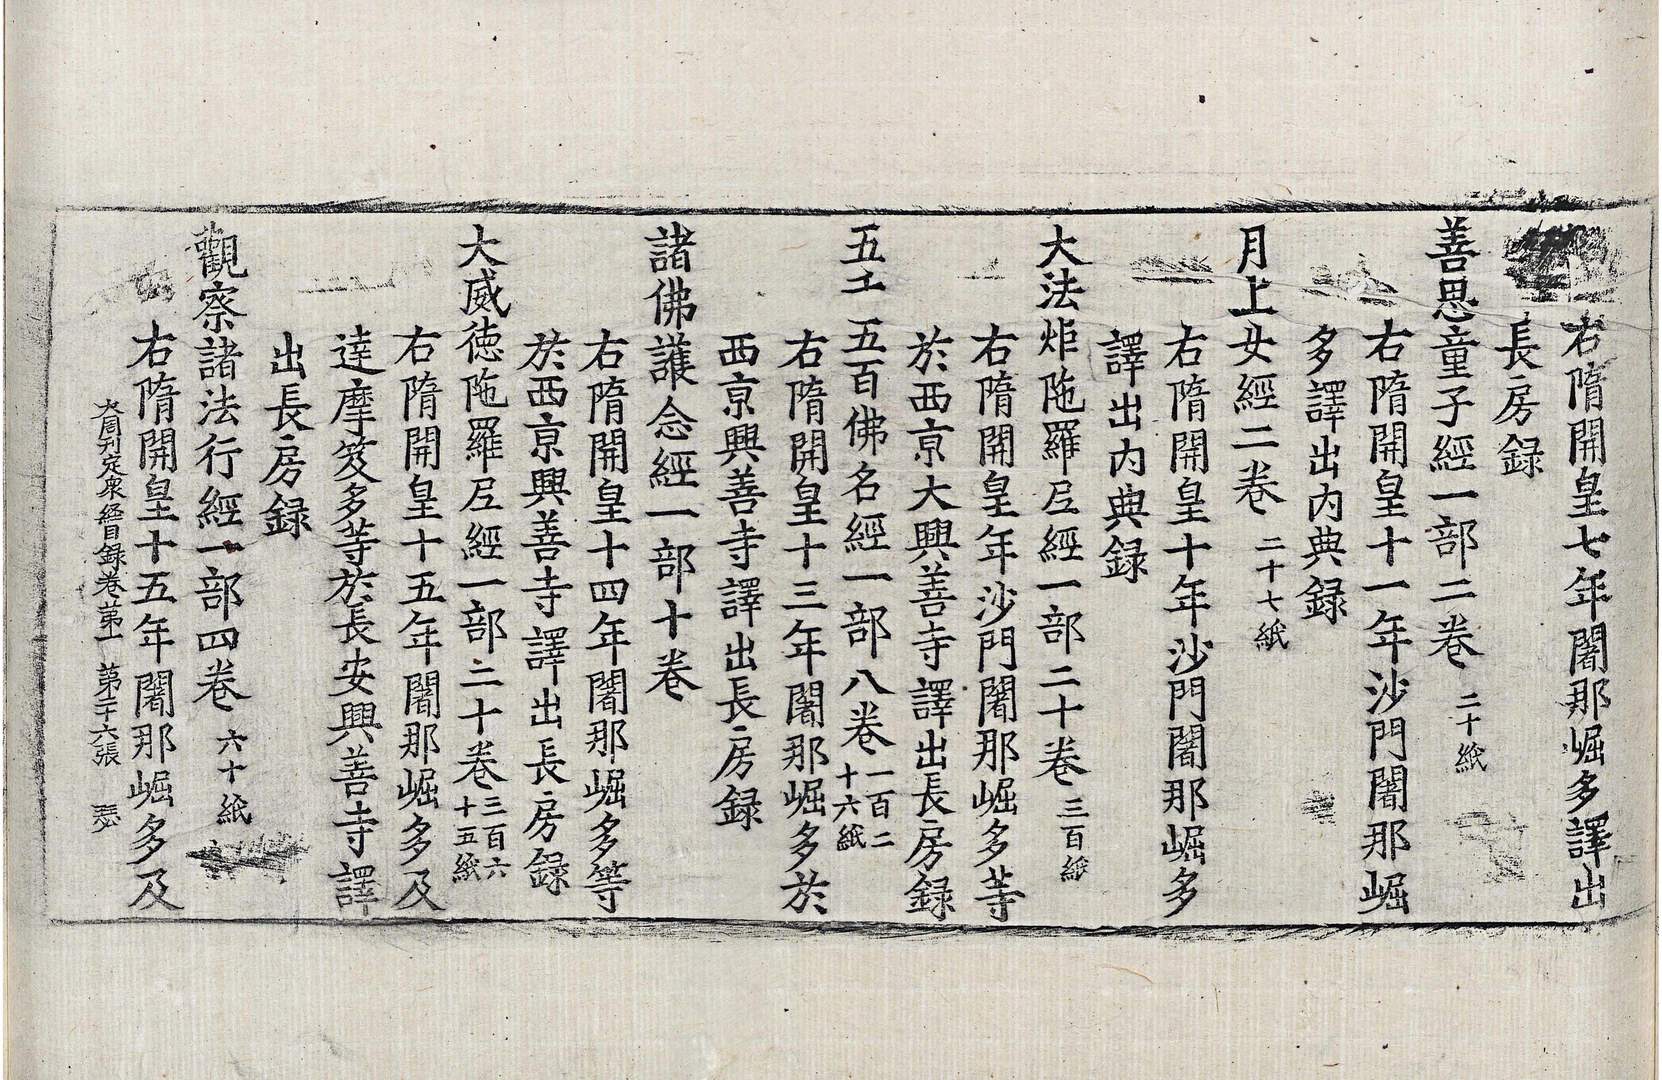 右隋開皇七年闍那崛多譯出
長房録
善思童子經一部二卷 二十紙
右隋開皇十一年沙門闍那崛
多譯出内典録
月上女經二卷 二十七紙
右隋開皇十年沙門闍那崛多
譯出内典録
大法炬陁羅尼經一部二十卷 三百紙
右隋開皇年沙門闍那崛多等
於西京大興善寺譯出長房録
五千五百佛名經一部八卷 一百二
十六紙
右隋開皇十三年闍那崛多於
西京興善寺譯出長房録
諸佛護念經一部十卷
右隋開皇十四年闍那崛多等
於西京興善寺譯出長房録
大威徳陁羅尼經一部二十卷 三百六
十五紙
右隋開皇十五年闍那崛多及
達摩笈多等於長安興善寺譯
出長房録
觀察諸法行經一部四卷 六十紙
右隋開皇十五年闍那崛多及
大周刊定衆經目録卷第一 第二十六張